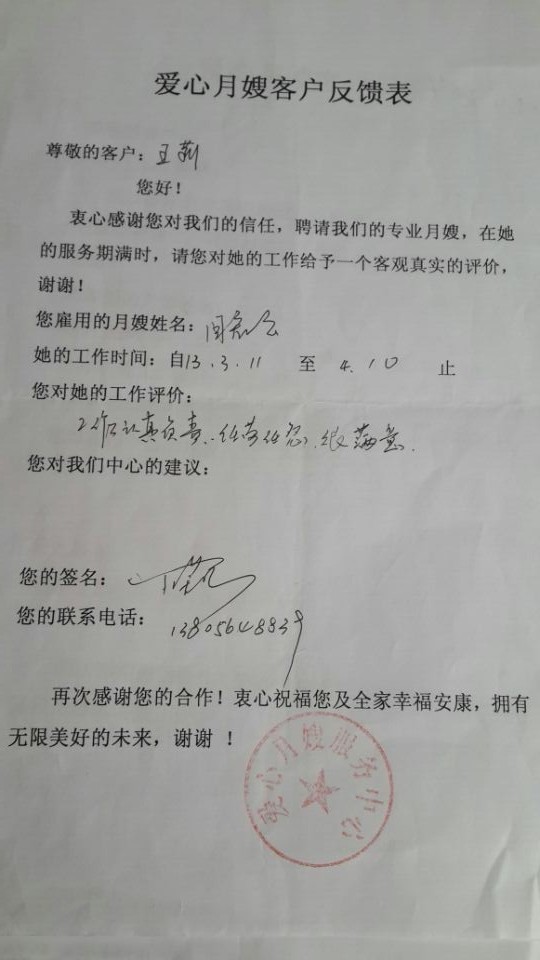 爱心月嫂客户反馈表
尊敬的客户：王莉
您好！
衷心感谢您对我们的信任，聘请我们的专业月嫂，在她
的服务期满时，请您对她的工作给予一个客观真实的评价，
谢谢！
您雇用的月嫂姓名：
她的工作时间：自13.3.11 至 4.10 止
您对她的工作评价：
工作认真负责、任劳任怨、很满意.
您对我们中心的建议：
您的签名：
您的联系电话：13805648839
再次感谢您的合作！衷心祝福您及全家幸福安康，拥有
无限美好的未来，谢谢 ！
爱心月嫂服务中心